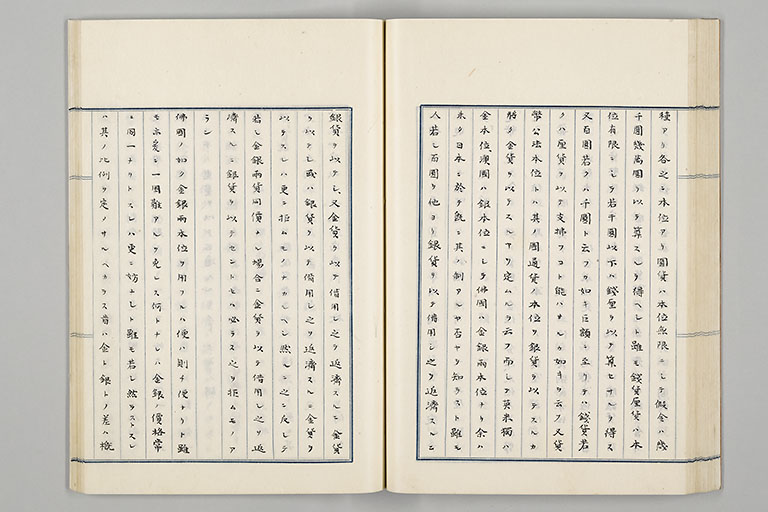 種アリ各之ニ本位アリ圓貨ハ本位無限ニシテ假令ハ幾
千圓幾萬圓ヲ以テ算スルヲ得ヘシト雖モ錢貨厘貨ハ本
位有限ニシテ若干圓以下ハ錢厘ヲ以テ算ヒナルヲ得ス
又百圓若クハ千圓ト云フカ如キ巨額ニ至リテハ錢貨若
クハ厘貨ヲ以テ支拂フコト能ハサルカ如キヲ云フ又貨
幣公法本位トハ其ノ國通貨ノ本位ヲ銀貨ヲ以テスルカ
將タ金貨ヲ以テスルヤヲ定ムルヲ云フ而シテ英米獨ハ
金本位澳國ハ銀本位ニシテ佛國ハ金銀兩本位ナリ余ハ
未タ日本ニ於テ既ニ其ノ制アルヤ否ヤヲ知ラスト雖モ
人若シ百圓ヲ他ヨリ銀貨ヲ以テ借用シ之ヲ返濟スルニ
銀貨ヲ以テシ又金貨ヲ以テ借用シ之ヲ返濟スルニ金貨
ヲ以テシ或ハ銀貨ヲ以テ借用シ之ヲ返濟スルニ金貨ヲ
以テスレハ更ニ拒ムモノナカルヘシ然ルニ之ニ反シテ
若シ金銀兩貨同價ナル場合ニ金貨ヲ以テ借用シ之ヲ返
濟スルニ銀貨ヲ以テセントセハ必ラス之ヲ拒ムモノア
ラン
佛國ノ如ク金銀兩本位ヲ用フルハ便ハ則チ便ナリト雖
モ亦爰ニ一困難アルヲ免レス何トナレハ金銀ノ價格常
ニ同一ナリトスレハ更ニ妨ナシト雖モ若シ然ラストスレ
ハ其ノ比例ヲ定メサルヘカラス昔ハ金ト銀トノ差ハ概